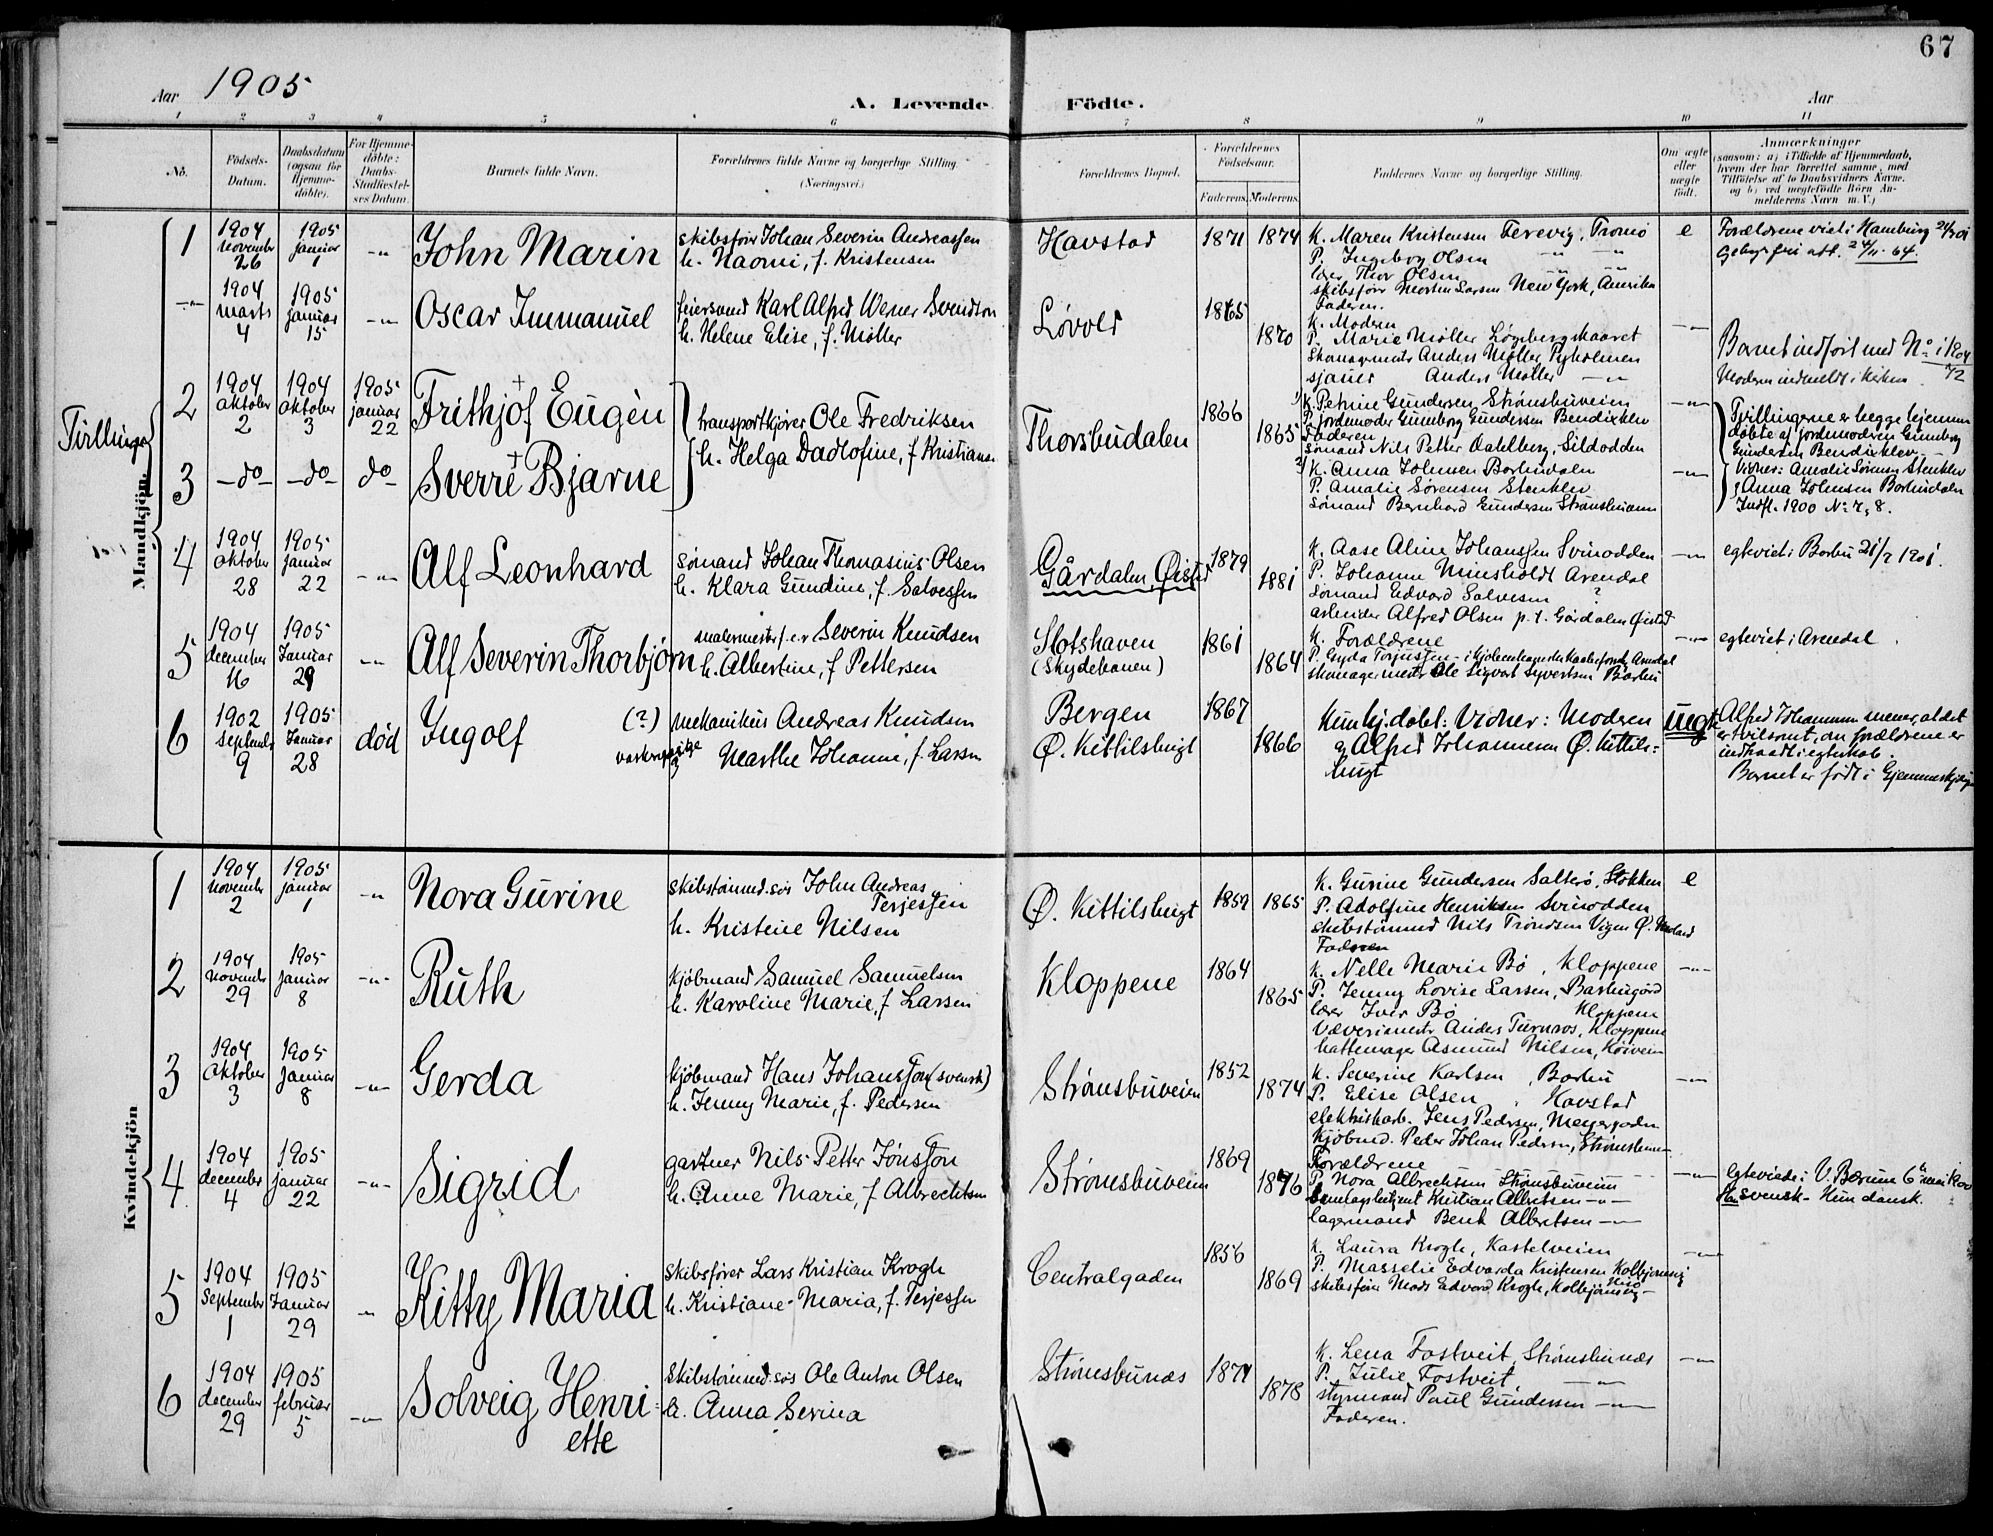 67
Aar 1905
A. Levende Födte.
Aar
1 2 3 4 5 6 7 8 9 10 11
No.
Födsels-Datum.
Daabsdatum (ogsaa för Hjemmedöbte).
For Hjemmedöbte: Daabs-Stadfæstelses Datum.
Barnets fulde Navn.
Forældrenes fulde Navne og borgerlige Stilling (Næringsvei).
Forældrenes Bopæl.
Forældrenes Födselsaar.
Faderens. Moderens.
Faddernes Navne og borgerlige Stilling.
Om ægte eller uægte födt.
Anmærkninger
(saasom: a) i Tilfælde af Hjemmedaab, hvem der har forrettet samme, med Tilföielse af to Daabsvidners Navne, og b) ved uægtefödte Börn Anmelderens Navn m. V.)
Mandkjön.
1
1904 november 26
1905 januar 1
-"-
John Marin
skibsfører Johan Severin Andreassen
h. Naomi, f. Kristensen
Havstad
1871 1874
K. Maren Kristensen Færevig, Tromø
P. Ingeborg Olsen
lærer Thor Olsen
skibsfører Morten Larsen New York, Amerika
Faderen.
e
Forældrene viet i Hamburg
-"-
1904 marts 4
1905 januar 15
-"-
Oscar Immanuel
feiersvend Karl Alfred Werner Svendson
h. Helene Elise, f. Møller
Løvold
1865
1870
K. Moderen
P. Marie Møller
Anders Møller
sjauer Anders Møller -"-
-"-
Barnet indført med No
Moderen indmeldt i kirken
Tvillinger
2
1904 oktober 2
1904 oktober 3
1905 januar 22
Frithjof Eugèn
transportkjører Ole Fredriksen
h. Helga Dadlofine, f. Kristians.
Thorsbudalen
1866
1865
1) K. Petrine Gundersen Strømsbuveien
P. jordemoder Gunborg Gundersen Bendiksklev
Faderen
Sømand Nils Petter Dahlberg, Sildodden
-"-
Tvillingerne er begge hjemme
døbte af jordemoderen Gunborg
Gundersen Bendiksklev
3
-do- -do- do
Sverre Bjarne
2) K. Anna Johnsen Barbudalen
P. Amalie Sørensen Stenklev
Sømand Bernhard Gundersen Strømsbuveien
-"-
Vidner: Amalie Sørensen Stenklev
& Anna Johnsen Barbudalen
Indfl. 1900 No 7, 8.
4
1904 oktober 28
1905 januar 22
-"-
Alf Leonhard
sømand Johan Thomasius Olsen
h. Klara Gundine, f. Salvessen
Gårdalen, Øisted
1879
1881
K. Aase Aline Johanssen Svinodden
P. Johanne Minsholdt Arendal
sømand Edvard Salvesen ?
arbeider Alfred Olsen p. t. Gårdalen Øisted
-"-
egteviet i Barbu 21/7 1901.
5
1904 december 16
1905 Januar 29
-"-
Alf Severin Thorbjørn
malermester f.e.v Severin Knudsen
h. Albertine, f. Pettersen
Slotshaven
(Skydebanen)
1861
1864
K. Forældrene
P. Gyda Torjussen
skomagermester Ole Sigvart Syvertsen Barbu
-"-
egteviet i Arendal
6
1902 september 9
1905 Januar 28
død
Ingolf
(?) mekanikus Andreas Knudsen
Marthe Johanne, f. Larsen
Bergen
Ø. Kittilsbugt
1867
1866
Kun hj.døbt: Vidner: Moderen
& Alfred Johannesen Ø. Kittilsbugt
uegte
Alfred Johannesen mener, at det
er tvilsomt, om forældrene er
indtraadt i egteskab.
Barnet er født i Hjemmeskjøtte
Kvindekjön
1
1904 november 2
1905 januar 1
-"-
Nora Gurine
skibstømmed.søs John Andreas
Terjessen
h. Kristine Nilsen
Ø. Kittilsbugt
1859 1865
K. Gurine Gundersen Salterø, Stokken
P. Adolfine Henriksen Svinodden
skibstømmd Nils Trondsen Vigen Ø. Moland
Faderen
e
2
1904 november 29
1905 januar 8
-"-
Ruth
kjøbmand Samuel Samuelsen
h. Karoline Marie, f. Larsen
Kloppene
1864
1865
K. Nelle Marie Bø, Kloppene
P. Jenny Lovise Larsen, Barbugård
lærer Iver Bø Kloppene
Væverimestr Anders Turnæs, Kloppene
hattemager Asmund Nilsen, Køiveien
-"-
3
1904 Oktober 3
1905 januar 8
-"-
Gerda
kjøbmand Hans Johansson (svensk)
h. Jenny Marie, f. Pedersen
Strømsbuveien
1852
1874
K. Severine Karlsen, Barbu
P. Elise Olsen, Havstad
elektrikarb. Jens Pedersen, Meyergaden
kjøbmd. Peder Johan Pedersen, Strømsbuv.
-"-
4
1904 december 4
1905 januar 22
-"-
Sigrid
gartner Nils Petter Jönsson
h. Anne Marie, f. Albrechtsen
Strømsbuveien
1869
1876
Forældrene
P. Nora Albrechtsen Strømsbuveien
Kristian Albretsen -"-
lagermand Bent Albretsen -"-
-"-
egteviede i V. Bærum
Han svensk - Hun dansk.
5
1904 September 1
1905 Januar 29
-"-
Kitty Maria
Skibsfører Lars Kristian Krogh
h. Kristiane Maria, f. Terjessen
Centralgaden
1856
1869
K. Laura Krogh, Kastelveien
P. Masselie Edvarda Kristensen Kolbjørnsvig
Hisø
skibsfører Mads Edvard Krogh, Kolbjørnsvig
-"-
6
1904 december 29
1905 februar 5
-"-
Solveig Henriette
Skibstømmd.søs Ole Anton Olsen
h. Anna Serina
Strømsbunæs
1871
1878
K. Lena Fostveit, Strømsbunæs
P. Julie Fostveit -"-
styrmand Paul Gundersen -"-
Faderen.
-"-